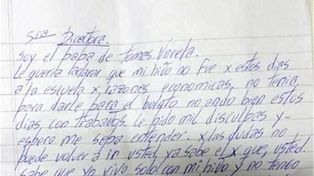 Sra Directora.
Soy el papa de Tomas Varela.
le queria declarar que mi hijo no fue x estos dias
a la escuela x razones economicas, no tenia
para darle para el boleto no ando bien estos
dias, con trabajos. le pido mil disculpas y
espero me sepa entender. x las dudas no
puede volver a ir usted ya sabe el x que, usted
sabe que yo vivo solo con mi hijo y no tengo